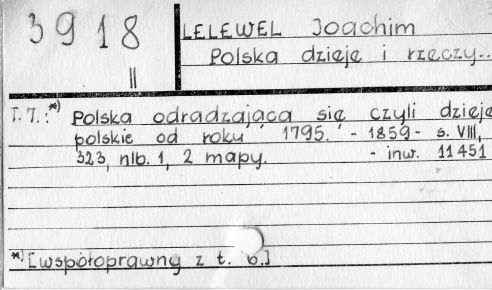 3918
II
LELEWEL Joachim
Polska dzieje i rzeczy...
T. 7.:*) Polska odradzająca się czyli dzieje
polskie od roku 1795. - 1859 - s. VIII,
323, nlb. 1, 2 mapy. - inw. 11451
*) [współoprawny z t. 6.]